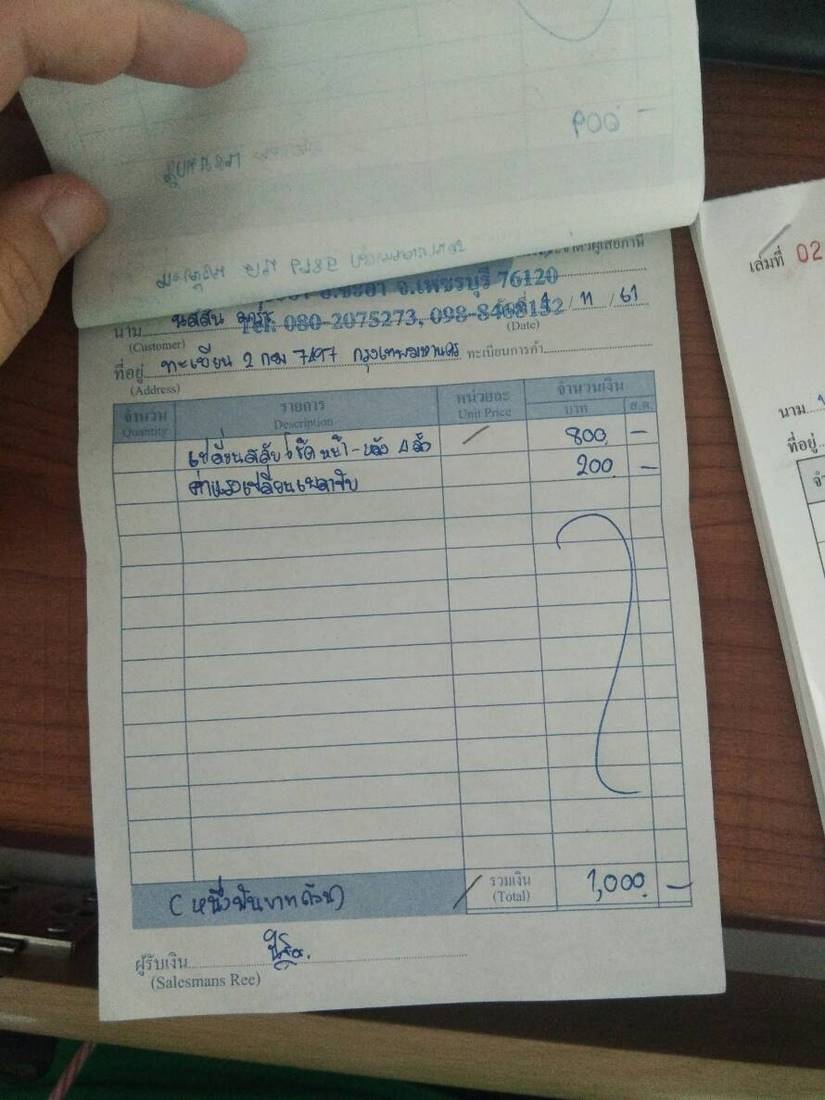 900 -
อ.ชะอำ จ.เพชรบุรี 76120
Tel. 080-2075273, 098-8468152
เล่มที่ 02
นาม นิสสัน มาร์ช วันที่ / 11 / 61
(Customer) (Date)
ที่อยู่ ทะเบียน 2 กม 7497 กรุงเทพมหานคร ทะเบียนการค้า
(Address)
จำนวน รายการ หน่วยละ จำนวนเงิน
Quantity Description Unit Price บาท ส.ต.
เปลี่ยน หน้า-หลัง 4 ล้อ 800 -
ค่าแรงเปลี่ยนเพลาขับ 200 -
(หนึ่งพันบาทถ้วน) รวมเงิน 1,000 -
(Total)
ผู้รับเงิน
(Salesmans Ree)
นาม
ที่อยู่